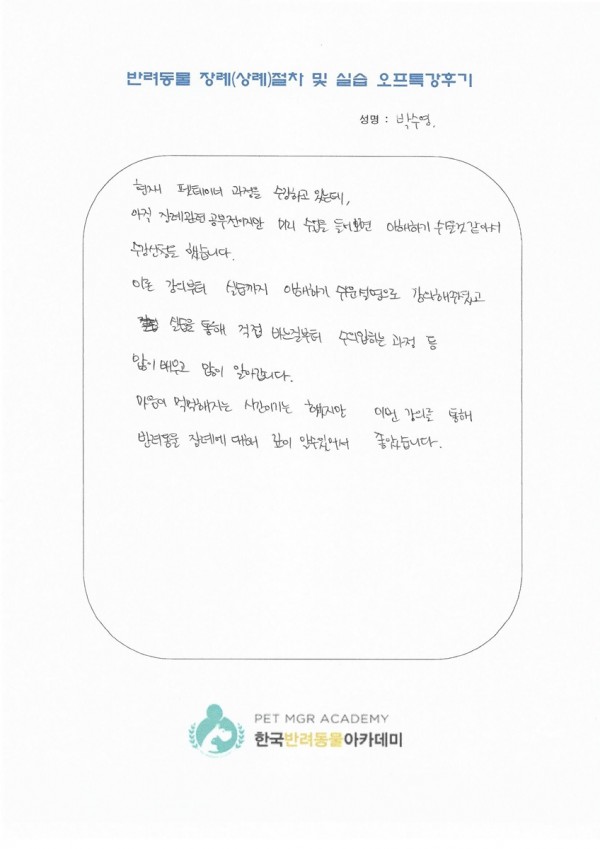 반려동물 장례(상례)절차 및 실습 오프특강후기
성명 : 박수영.
현재 펫테이너 과정을 수강하고 있는데,
아직 장례관련 공부전이지만 미리 수업을 들어보면 이해하기 수월할것 같아서
수강신청을 했습니다.
이론 강의부터 실습까지 이해하기 쉬운설명으로 강의해주셨고
실습을 통해 직접 바느질부터 수의입히는 과정 등
많이 배우고 많이 알아갑니다.
마음이 먹먹해지는 시간이기는 했지만 이번 강의를 통해
반려동물 장례에 대해 깊이 알수있어서 좋았습니다.
PET MGR ACADEMY
한국반려동물아카데미